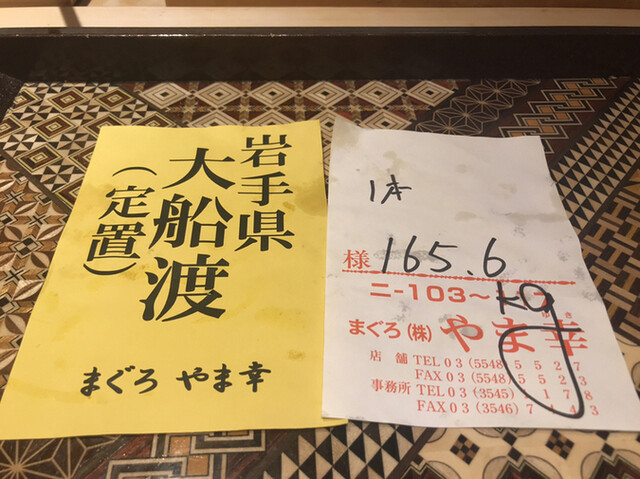 岩手県
大船渡
(定置)
まぐろ やま幸
1本
様 165.6
kg
ニ-103~
まぐろ(株) やま幸
ゆき
店舗 TEL 03 (5548) 5527
FAX 03 (5548) 5523
事務所 TEL 03 (3545)
FAX 03 (3546)